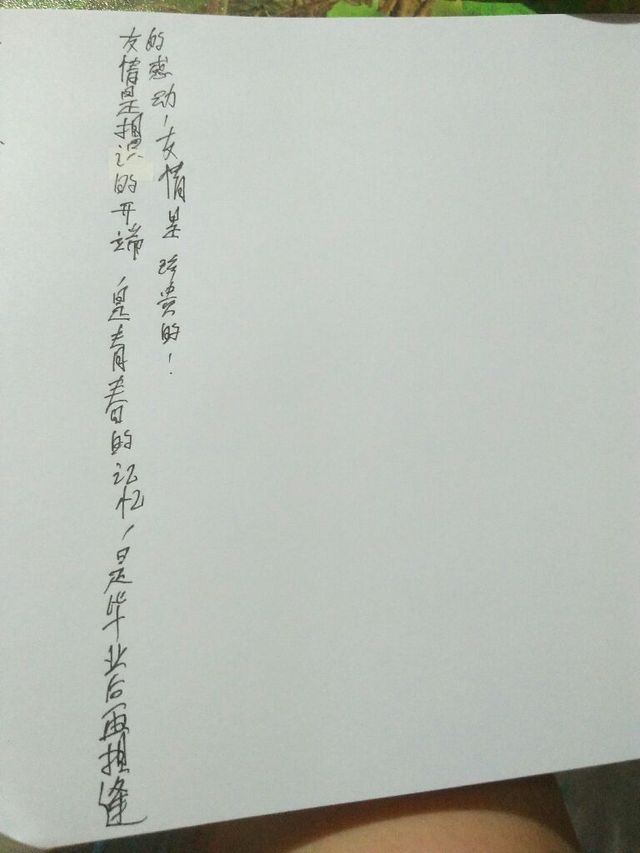 友情是相识的开端，是青春的记忆，是毕业后再相逢
的感动，友情是珍贵的！